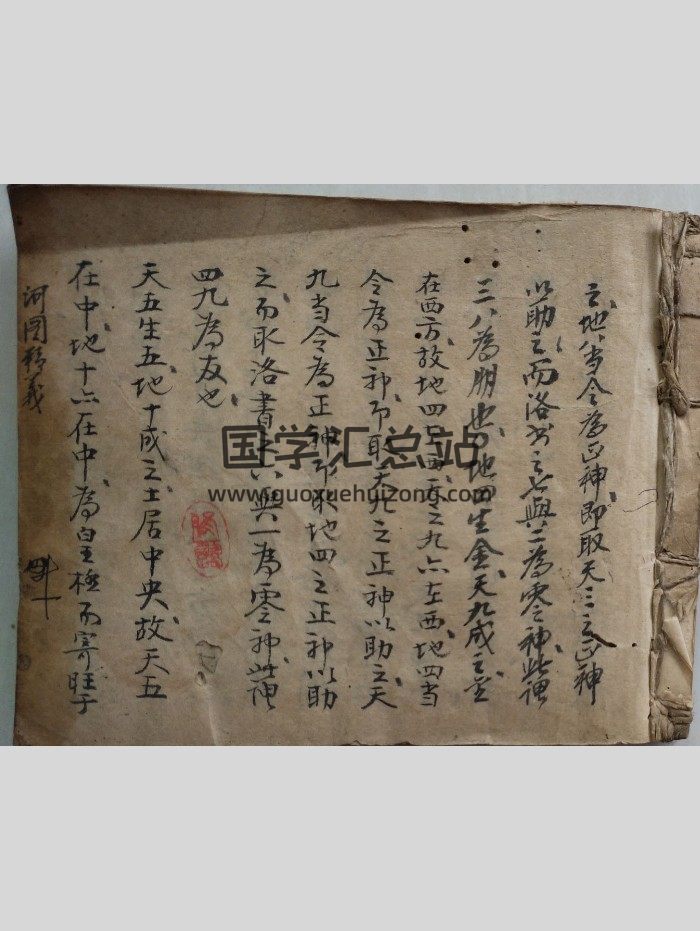 之地八当令為正神即取天三之正神
以助之而洛书之七與二為零神此謂
三八為朋也地四生金天九成之並
在西方故地四在西天之九亦在西地四当
令為正神即取天九之正神以助之天
九当令為正神即取地四之正神以助
之而取洛書之六與一為零神此謂
四九為友也
天五生五地十成之土居中央故天五
在中地十亦在中為皇極而寄旺于
河图精義
国学汇总站
www.guoxuehuizong.com